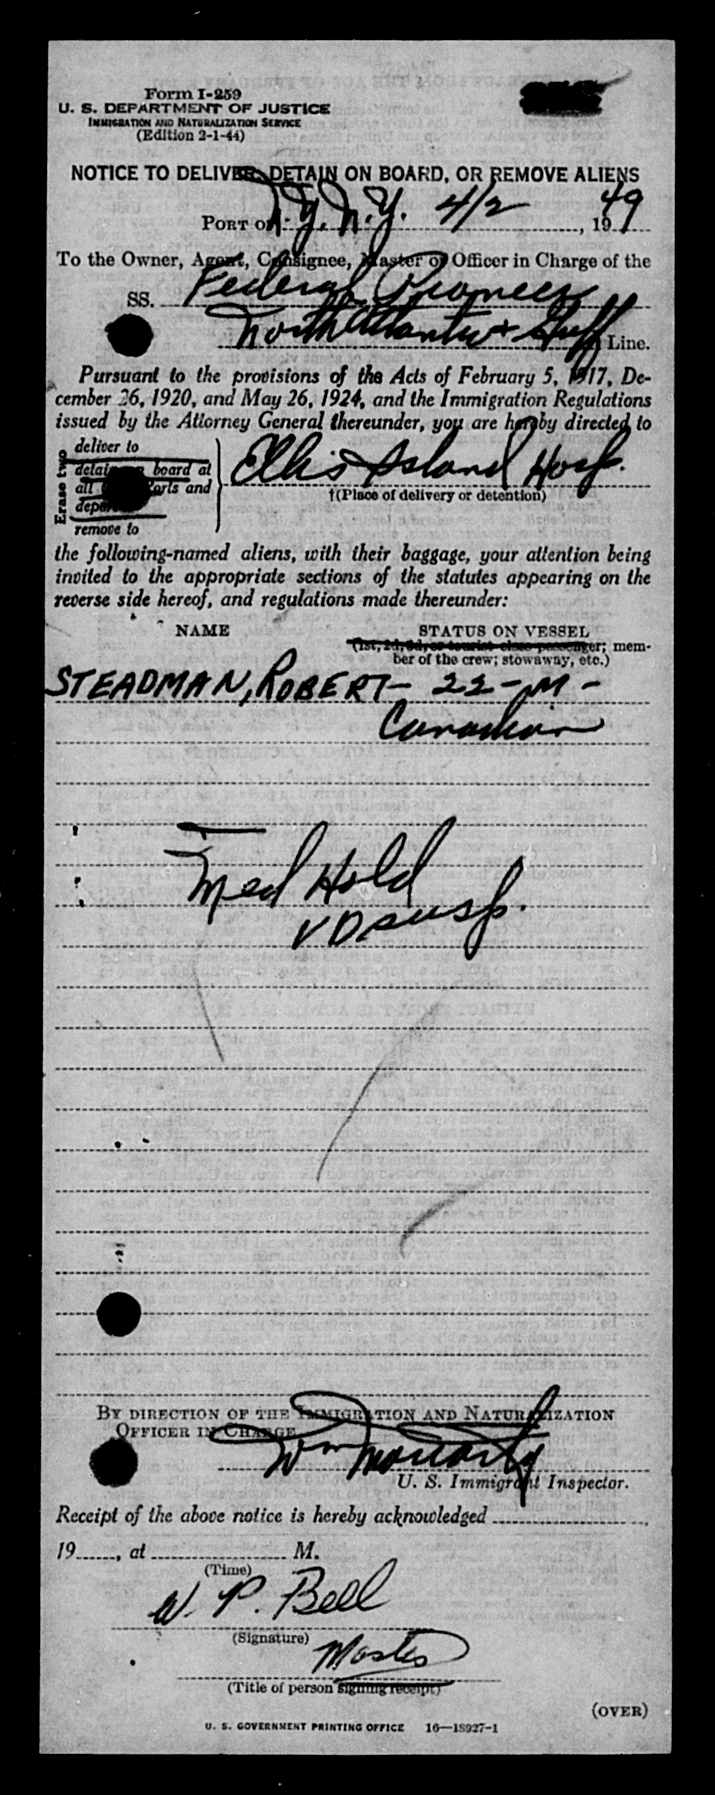 Form I-259
U. S. DEPARTMENT OF JUSTICE
IMMIGRATION AND NATURALIZATION SERVICE
(Edition 2-1-44)
NOTICE TO DELIVER, DETAIN ON BOARD, OR REMOVE ALIENS
PORT OF N.Y. N.Y. 4/2, 1949
To the Owner, Agent, Consignee, Master or Officer in Charge of the
SS. Federal Pioneer
North Atlantic & Gulf Line.
Pursuant to the provisions of the Acts of February 5, 1917, De-
cember 26, 1920, and May 26, 1924, and the Immigration Regulations
issued by the Attorney General thereunder, you are hereby directed to
Erase two
deliver to
detain on board at
all ports and
remove to
Ellis Island Hosp.
†(Place of delivery or detention)
the following-named aliens, with their baggage, your attention being
invited to the appropriate sections of the statutes appearing on the
reverse side hereof, and regulations made thereunder:
NAME STATUS ON VESSEL
(1st, 2d, 3d, or tourist class passenger; mem-
ber of the crew; stowaway, etc.)
STEADMAN, ROBERT - 22 - M -
Canadian
Med Hold
VD susp.
BY DIRECTION OF THE IMMIGRATION AND NATURALIZATION
OFFICER IN CHARGE
Wm Moriarty
U. S. Immigrant Inspector.
Receipt of the above notice is hereby acknowledged
19, at M.
(Time)
W. P. Bell
(Signature)
Master
(Title of person signing receipt)
(OVER)
U. S. GOVERNMENT PRINTING OFFICE 16—18927-1